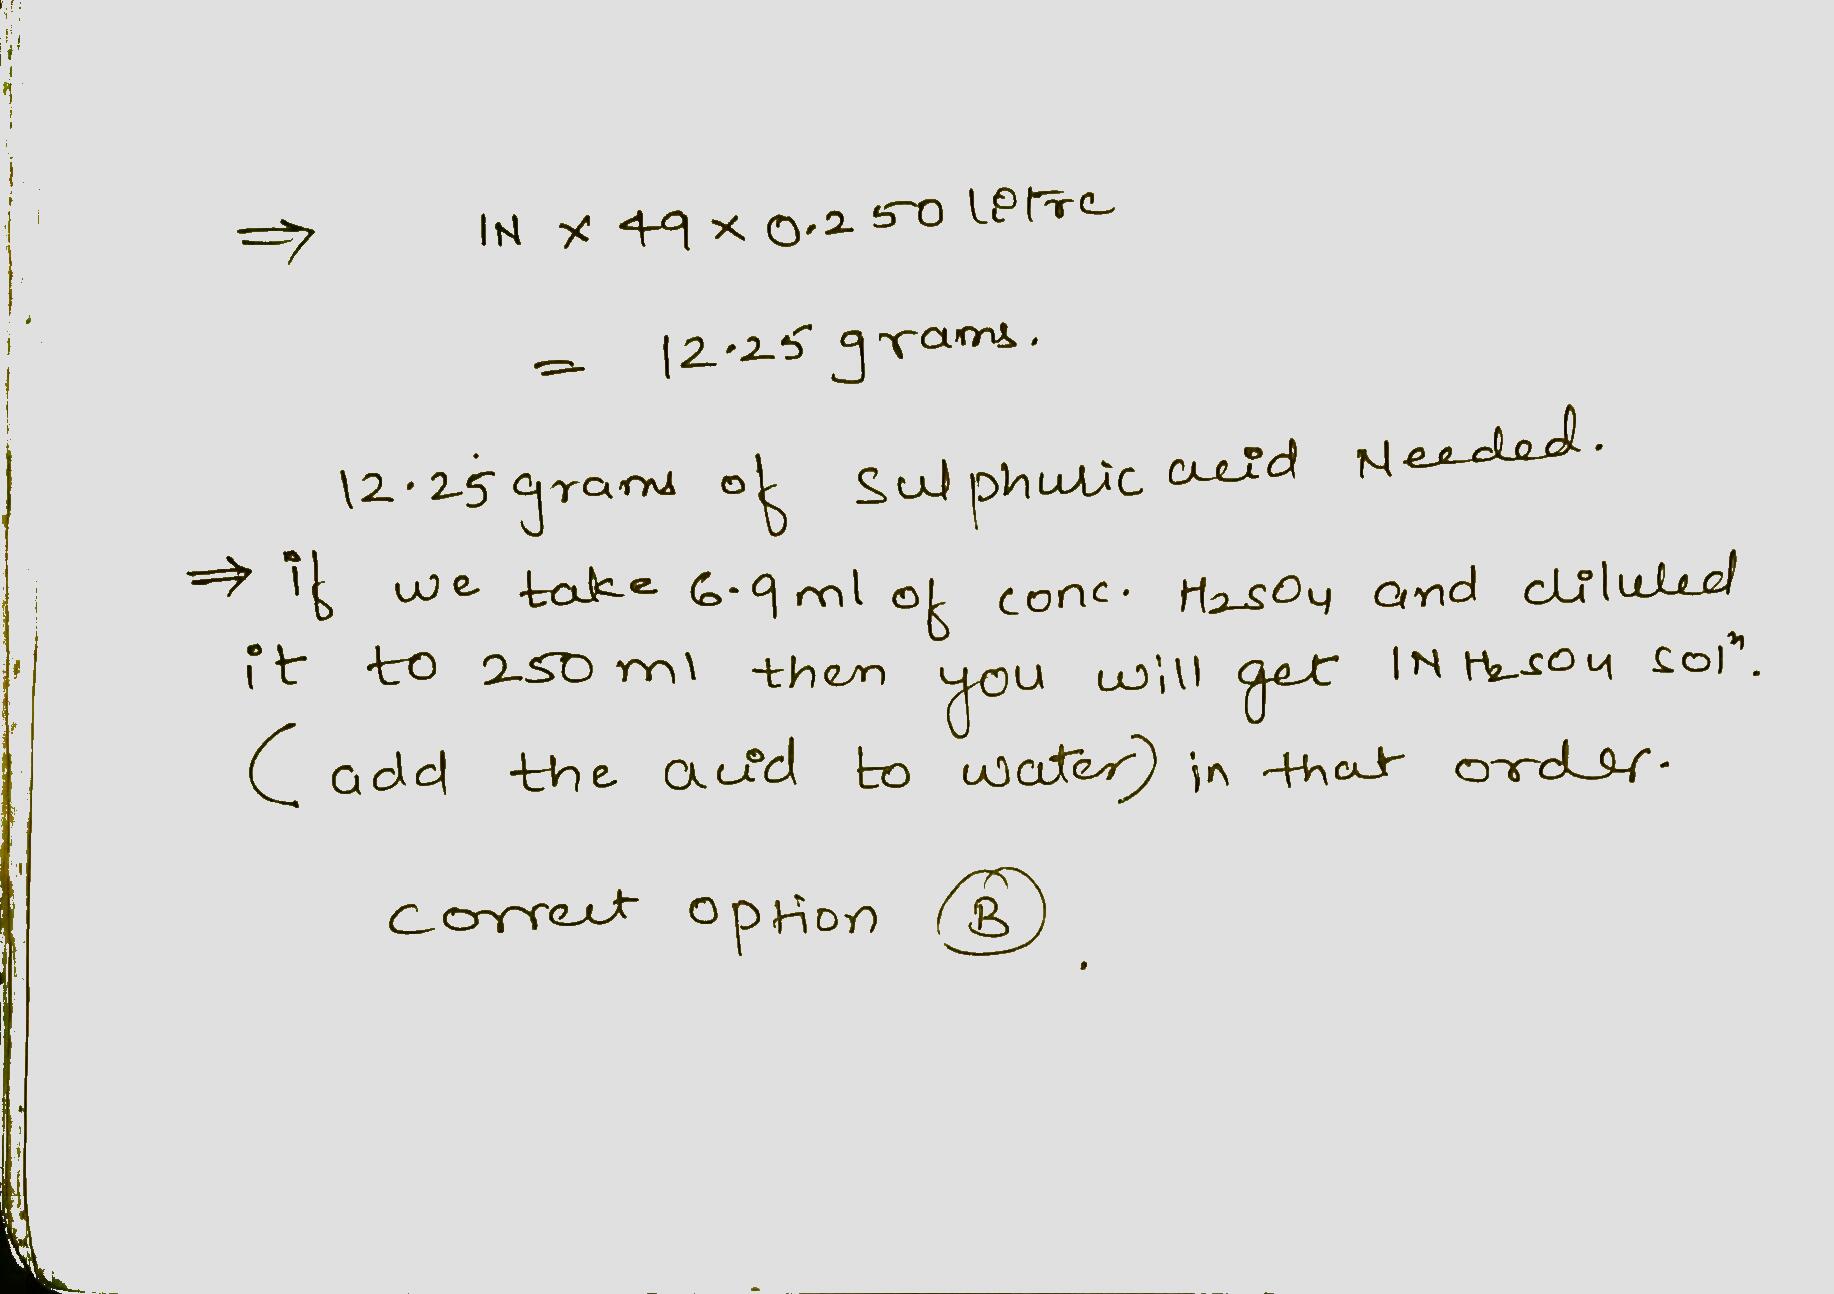 ⇒ 1N × 49 × 0.250 litre
= 12.25 grams.
12.25 grams of sulphuric acid Needed.
⇒ if we take 6.9 ml of conc. H2SO4 and diluted
it to 250 ml then you will get 1N H2SO4 solⁿ.
(add the acid to water) in that order.
correct option B.